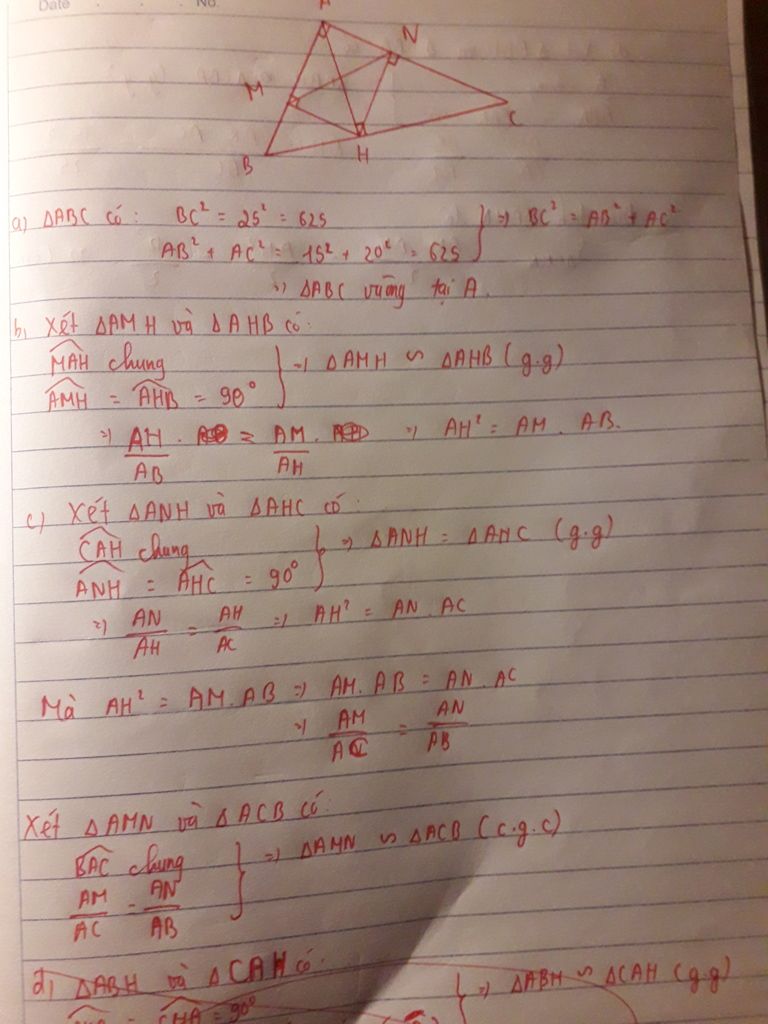 Date No.
N
M
C
B
H
a) ΔABC có: BC² = 25² = 625
AB² + AC² = 15² + 20² = 625 } => BC² = AB² + AC²
=> ΔABC vuông tại A.
b, Xét ΔAMH và ΔAHB có:
MAH chung
AMH = AHB = 90° } => ΔAMH ∽ ΔAHB (g.g)
=> AH/AB = AM/AH => AH² = AM . AB.
c) Xét ΔANH và ΔAHC có:
CAH chung
ANH = AHC = 90° } => ΔANH = ΔAHC (g.g)
=> AN/AH = AH/AC => AH² = AN . AC
Mà AH² = AM.AB => AM.AB = AN.AC
=> AM/AC = AN/AB
Xét ΔAMN và ΔACB có:
BAC chung
AM/AC = AN/AB } => ΔAMN ∽ ΔACB (c.g.c)
d) ΔABH và ΔCAH có:
=> ΔABH ∽ ΔCAH (g.g)
CHA = 90°